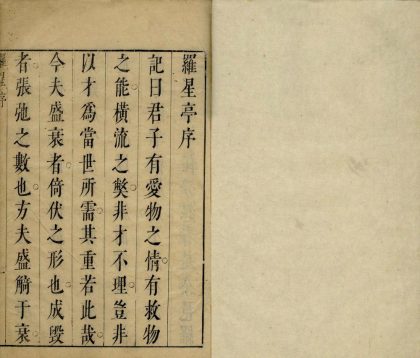 羅星亭序
記曰君子有愛物之情有救物
之能橫流之獘非才不理豈非
以才為當世所需其重若此哉
今夫盛衰者倚伏之形也成毀
者張弛之數也方夫盛觭于衰
羅星序